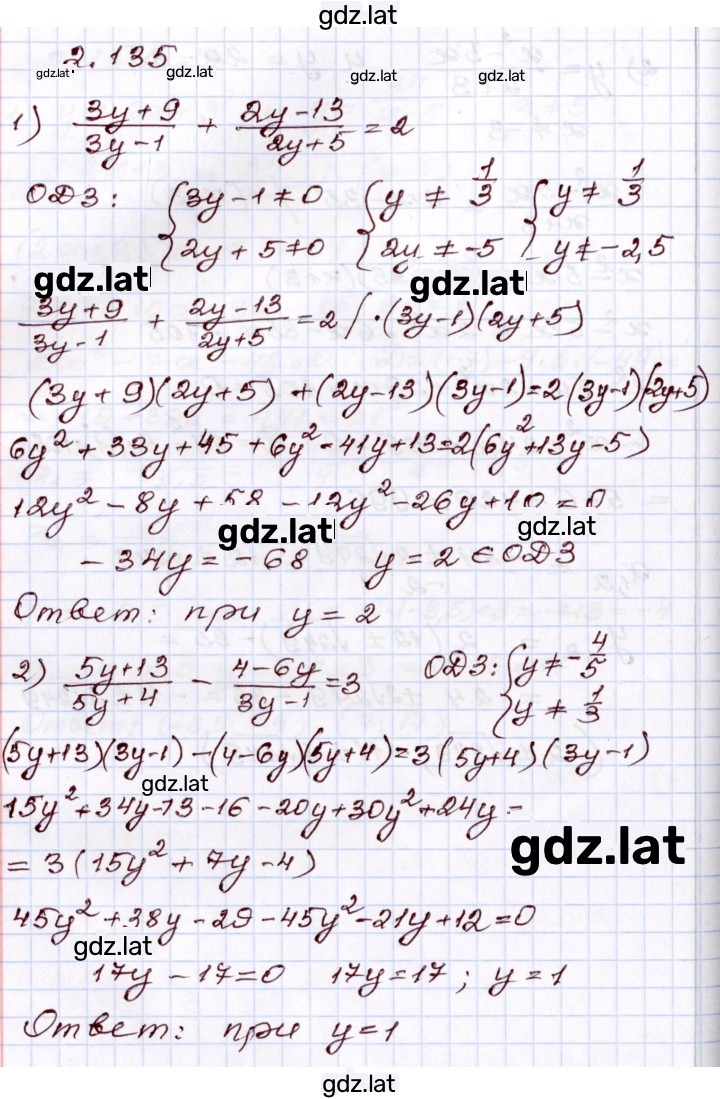 gdz.lat
2.135
gdz.lat gdz.lat gdz.lat gdz.lat
1) (3y+9)/(3y-1) + (2y-13)/(2y+5) = 2
ОДЗ: { 3y-1≠0 { y ≠ 1/3 { y≠ 1/3
2y+5≠0 2y ≠ -5 y≠-2,5
gdz.lat gdz.lat
(3y+9)/(3y-1) + (2y-13)/(2y+5) = 2 / ·(3y-1)(2y+5)
(3y+9)(2y+5) + (2y-13)(3y-1)=2(3y-1)(2y+5)
6y²+33y+45+6y²-41y+13=2(6y²+13y-5)
12y²-8y+58-12y²-26y+10=0
gdz.lat gdz.lat
-34y=-68 y=2∈ОДЗ
Ответ: при y=2
2) (5y+13)/(5y+4) - (4-6y)/(3y-1) = 3 ОДЗ: { y≠-4/5
y≠ 1/3
(5y+13)(3y-1)-(4-6y)(5y+4)=3(5y+4)(3y-1)
gdz.lat
15y²+34y-13-16-20y+30y²+24y=
gdz.lat
=3(15y²+7y-4)
45y²+38y-29-45y²-21y+12=0
gdz.lat
17y-17=0 17y=17; y=1
Ответ: при y=1
gdz.lat